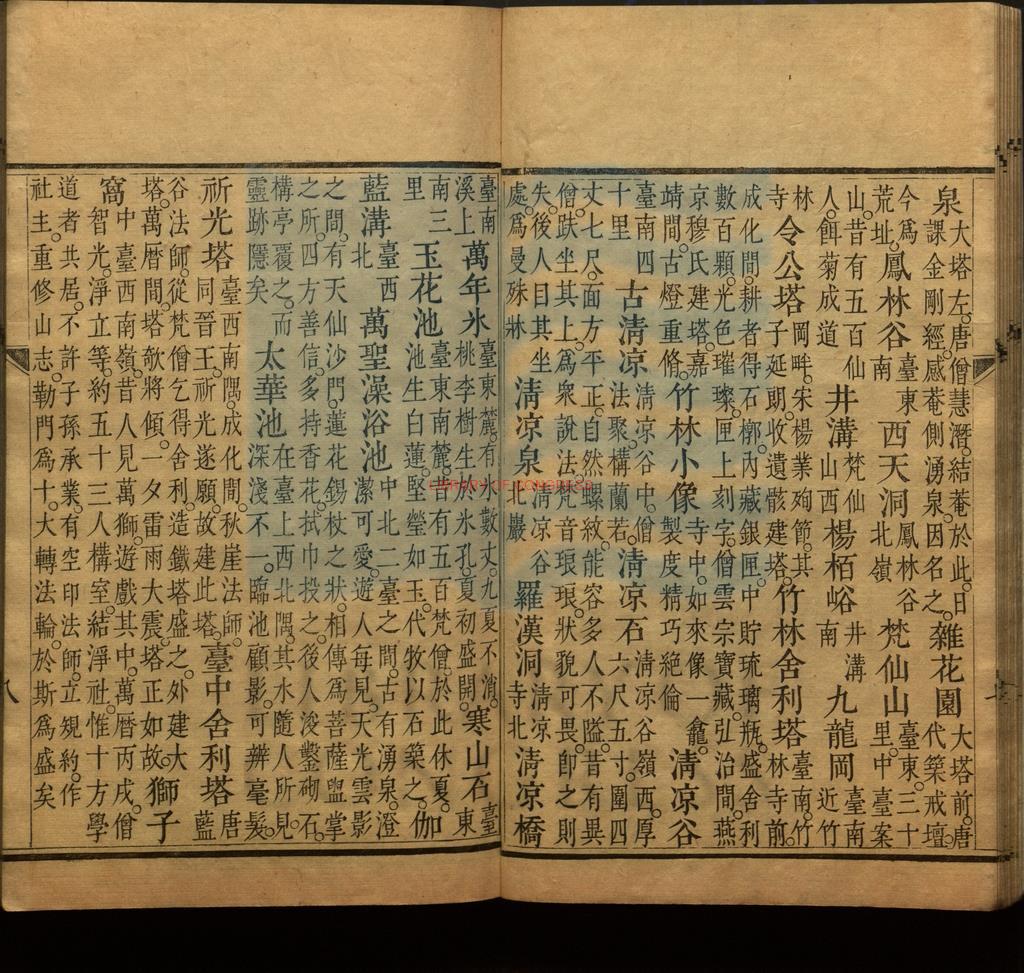 泉大塔左。唐僧慧潛。結菴於此。日課金剛經。感菴側湧泉。因名之。雜花園大塔前。唐代築戒壇。
今為荒址。鳳林谷臺東南西天洞鳳林谷北嶺梵仙山臺東。三十里。中臺案
山。昔有五百仙人。餌菊成道井溝梵仙山西楊栢峪井溝南九龍岡臺南近竹
林寺令公塔岡畔。宋楊業殉節。其子延朗。收遺骸建塔。竹林舍利塔臺南。竹林寺前。
成化間。耕者得石槨。內藏銀匣。中貯琉璃瓶。盛舍利數百顆。光色璀璨。匣上刻字。僧雲宗寶藏。弘治間。燕
京穆氏建塔。嘉靖間。古燈重脩。竹林小像寺中。如來像一龕。製度精巧絕倫清凉谷
臺南四十里古清凉清凉谷中。僧法聚構蘭若。清凉石清凉谷嶺西。厚六尺五寸。圍四
丈七尺。面方平正。自然螺紋。能容多人不隘。昔有異僧。趺坐其上。為衆說法。梵音琅琅。狀貌可畏。即之則
失。後人目其坐處。為曼殊牀清凉泉清凉谷北巖羅漢洞清凉寺北清凉橋
臺南溪上萬年氷臺東麓。有氷數丈。九夏不消。桃李樹生於氷孔。夏初盛開。寒山石臺東
南三里玉花池臺東南麓。昔有五百梵僧。於此休夏。池生白蓮。堅瑩如玉。代牧以石築之。伽
藍溝臺西北萬聖澡浴池中北二臺之間。古有湧泉。澄潔可愛。遊人每見。天光雲影
之間。有天仙沙門。蓮花錫杖之狀。相傳為菩薩盥掌之所。四方善信。多持香花。拭巾投之。後人浚鑿砌石。
構亭覆之。而靈跡隱矣太華池在臺上西北隅。其水隨人所見。深淺不一。臨池顧影。可辨毫髮。
祈光塔臺西南隅。成化間。秋崖法師。同晉王。祈光遂願。故建此塔。臺中舍利塔唐藍
谷法師。從梵僧乞得舍利。造鐵塔盛之。外建大塔。萬曆間。塔欹將傾。一夕雷雨大震。塔正如故。獅子
窩中臺西南嶺。昔人見萬獅。遊戲其中。萬曆丙戌。僧智光。淨立等。約五十三人。構室。結淨社。惟十方學
道者共居。不許子孫承業。有空印法師。立規約。作社主。重修山志。勒門為十。大轉法輪。於斯為盛矣
八
LIBRARY OF CONGRESS